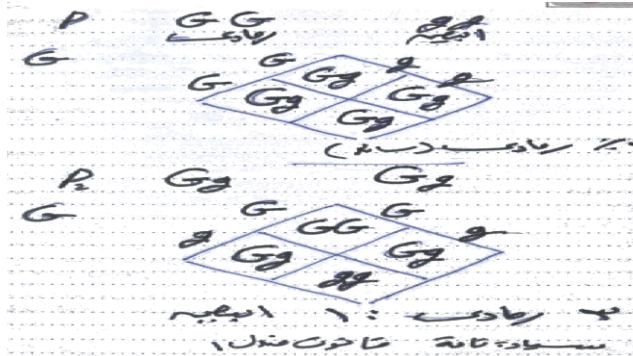 P GG gg
رمادي ابيض
G
G G g g
Gg
Gg Gg
Gg
% رمادي
P₂ Gg Gg
G
g G G g
GG
Gg Gg
gg
٣ رمادي : ١ ابيض
سيادة تامة قانون مندل ١